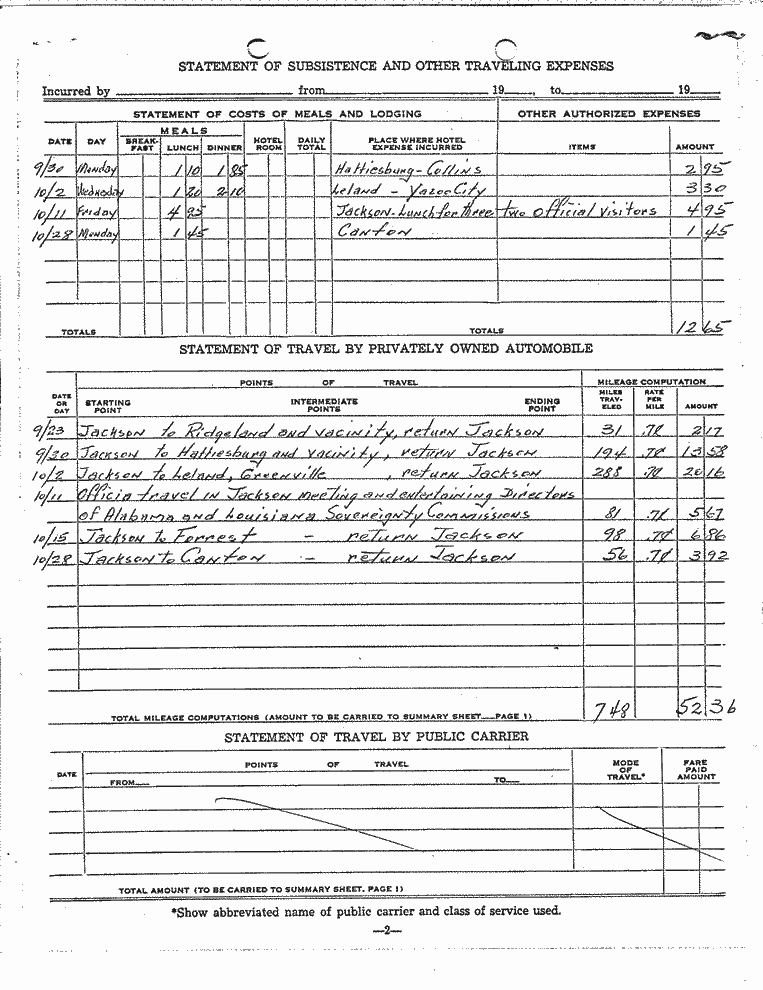 STATEMENT OF SUBSISTENCE AND OTHER TRAVELING EXPENSES
Incurred by from 19 , to 19
STATEMENT OF COSTS OF MEALS AND LODGING OTHER AUTHORIZED EXPENSES
DATE DAY MEALS BREAK-FAST LUNCH DINNER HOTEL ROOM DAILY TOTAL PLACE WHERE HOTEL EXPENSE INCURRED ITEMS AMOUNT
9/30 Monday 1 10 1 85 Hattiesburg - Collins 2 95
10/2 Wednesday 1 20 2 10 Leland - Yazoo City 3 30
10/11 Friday 4 95 Jackson - Lunch for three two official visitors 4 95
10/28 Monday 1 45 Canton 1 45
TOTALS TOTALS 12 65
STATEMENT OF TRAVEL BY PRIVATELY OWNED AUTOMOBILE
POINTS OF TRAVEL MILEAGE COMPUTATION
DATE OR DAY STARTING POINT INTERMEDIATE POINTS ENDING POINT MILES TRAV-ELED RATE PER MILE AMOUNT
9/23 Jackson to Ridgeland and vacinity, return Jackson 31 .7¢ 2 17
9/30 Jackson to Hattiesburg and vacinity, return Jackson 194 .7¢ 13 58
10/2 Jackson to Leland, Greenville , return Jackson 288 .7¢ 20 16
10/11 Officia travel in Jackson meeting and entertaining Directors
of Alabama and Louisiana Sovereignty Commissions 81 .7¢ 5 67
10/15 Jackson to Forrest - return Jackson 98 .7¢ 6 86
10/28 Jackson to Canton - return Jackson 56 .7¢ 3 92
TOTAL MILEAGE COMPUTATIONS (AMOUNT TO BE CARRIED TO SUMMARY SHEET—PAGE 1) 748 52 36
STATEMENT OF TRAVEL BY PUBLIC CARRIER
DATE POINTS OF TRAVEL MODE OF TRAVEL* FARE PAID AMOUNT
FROM— TO—
TOTAL AMOUNT (TO BE CARRIED TO SUMMARY SHEET, PAGE 1)
*Show abbreviated name of public carrier and class of service used.
—2—